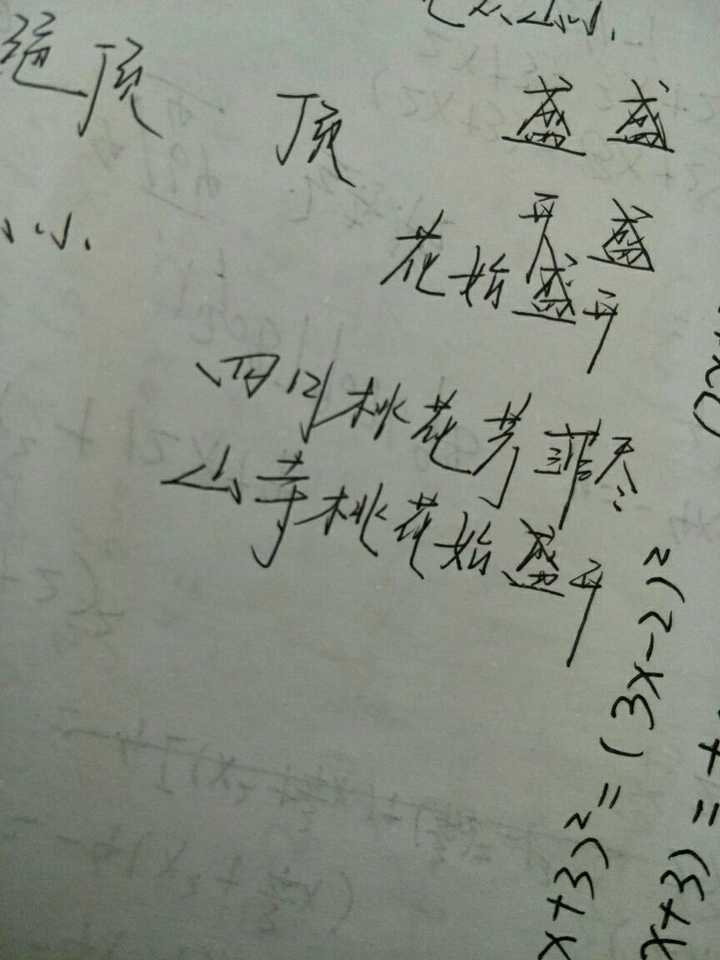 绝顶 顶 盛 盛
小。
开 盛
花始盛开
四月桃花芳菲尽
山寺桃花始盛开
x+3)²=(3x-2)²
x+3)=+